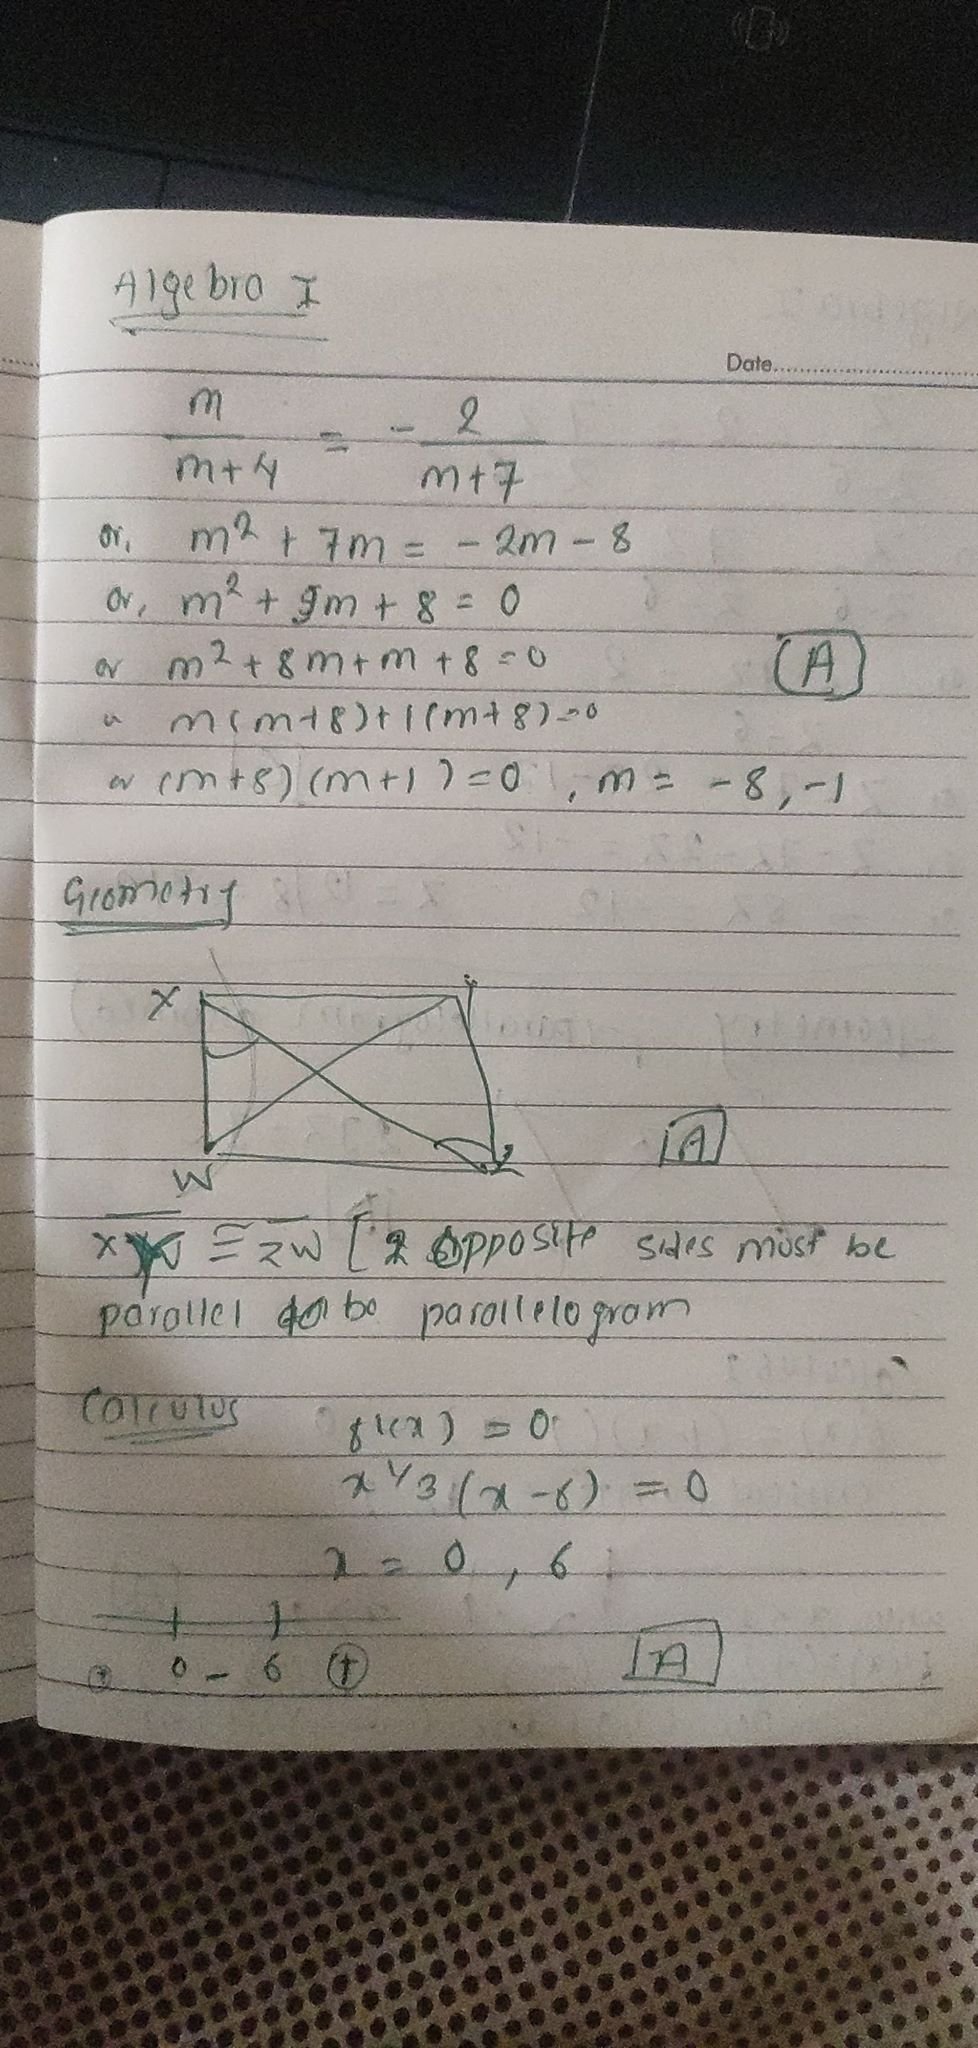 Algebra I
Date
m / m+4 = - 2 / m+7
or, m² + 7m = - 2m - 8
or, m² + 9m + 8 = 0
or m² + 8m + m + 8 = 0
A
m(m+8)+1(m+8)=0
or (m+8)(m+1)=0, m = -8, -1
Geometry
X
W
A
≅ ZW [ 2 opposite sides must be
parallel be parallelogram
Calculus
f'(x) = 0
x^1/3 (x-6) = 0
x = 0, 6
+ 0 - 6 +
A